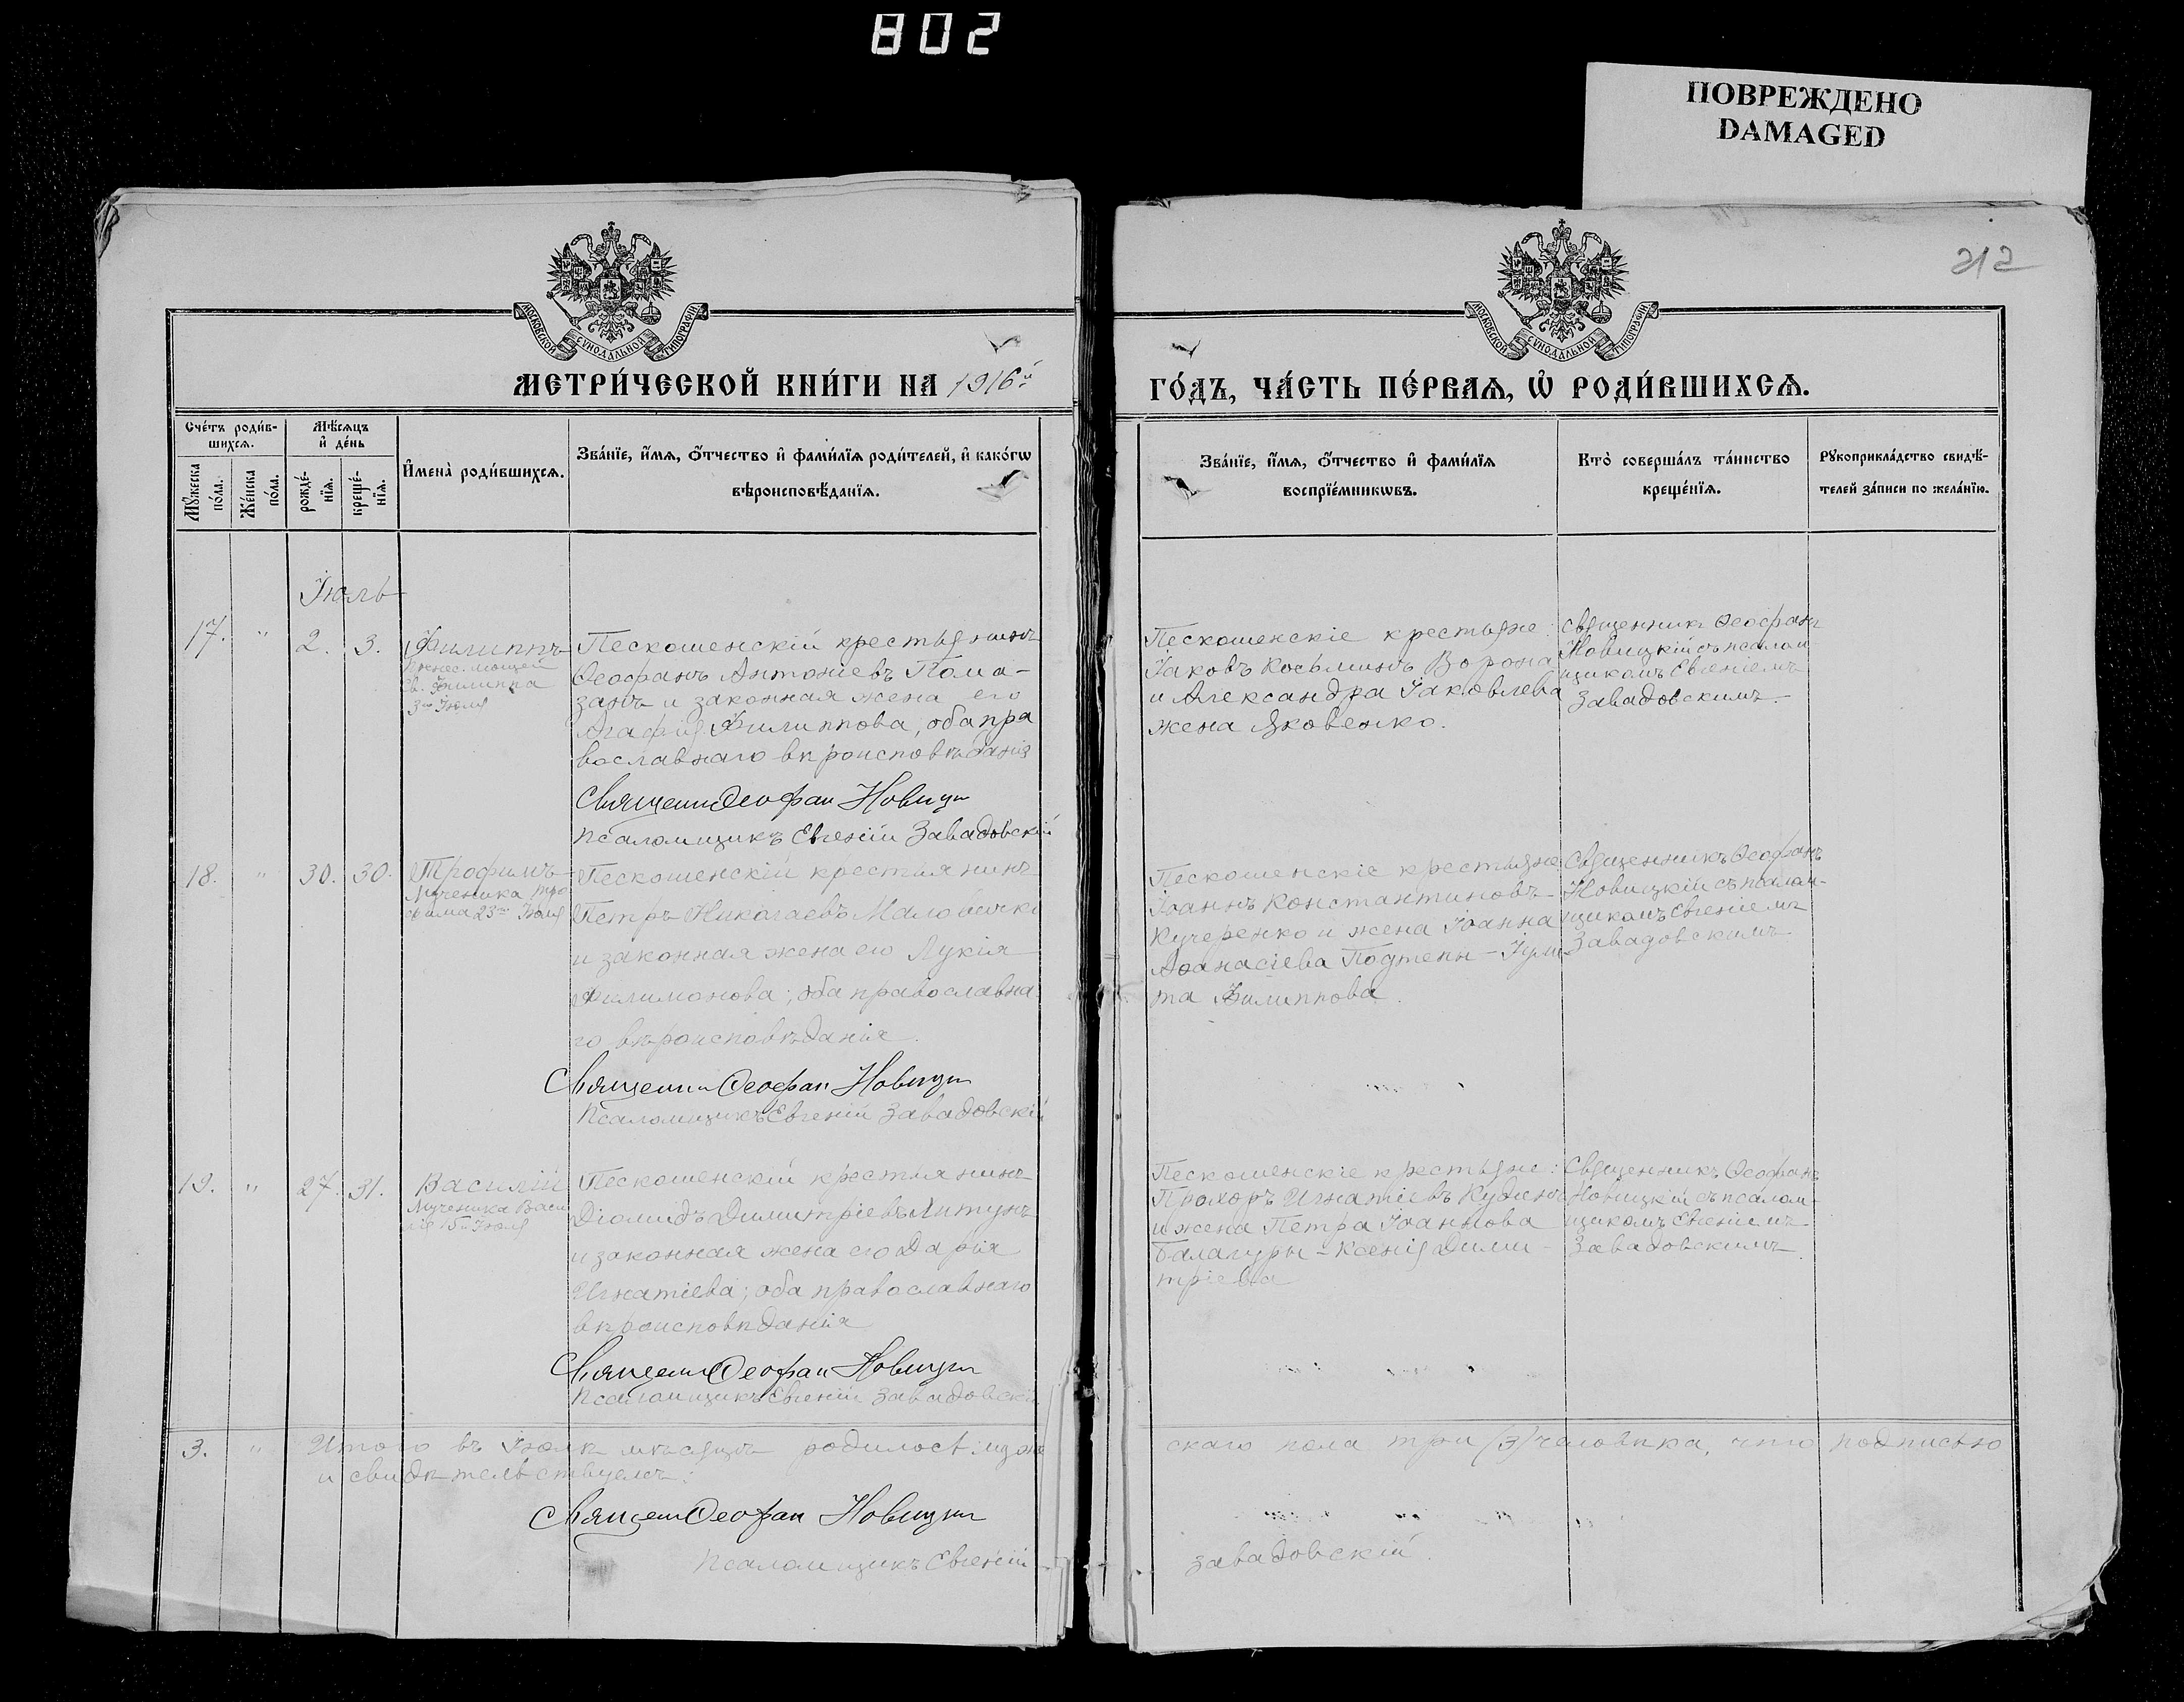 802
ПОВРЕЖДЕНО
DAMAGED
212
МОСКОВСКОЙ СѴНОДАЛЬНОЙ ТИПОГРАФІИ
МОСКОВСКОЙ СѴНОДАЛЬНОЙ ТИПОГРАФІИ
МЕТРИ́ЧЕСКОЙ КНИ́ГИ НА 1916й
ГО́ДЪ, ЧА́СТЬ ПЕ́РВАѦ, Ѡ҆ РОДИ́ВШИХСѦ.
Сче́тъ роди́в-
шихсѧ.
Мѣ́сѧцъ
и҆ де́нь
Мꙋ́жеска
по́ла.
Же́нска
по́ла.
рожде́-
нїѧ.
креще́-
нїѧ.
И҆мена̀ роди́вшихсѧ.
Зва́нїе, и҆́мѧ, ѻ҆́тчество и҆ фами́лїѧ роди́телей, и҆ како́гѡ
вѣроисповѣ́данїѧ.
Зва́нїе, и҆́мѧ, ѻ҆́тчество и҆ фами́лїѧ
воспрїе́мникѡвъ.
Кто̀ соверша́лъ та́инство
креще́нїѧ.
Рꙋкоприкла́дство свидѣ́-
телей за́писи по жела́нїю.
Іюль
17. " 2. 3. Филиппъ
Св. Филиппа
3го Іюля
Пескошенскій крестьянинъ
Ѳеофанъ Антоніевъ Пома-
занъ и законная жена его
Агафія Филиппова, оба пра
вославнаго вѣроисповѣданія
Священни Ѳеофан Новицки
Псаломщикъ Евгеній Завадовскій
Пескошенскіе крестьяне:
Іаковъ Косьминъ Ворона
и Александра Іаковлева
жена Яковенко.
Священникъ Ѳеофанъ
Новицкій съ псалом
щикомъ Евгеніемъ
Завадовскимъ.
18. " 30. 30. Трофимъ
Мученика Тро
фима 23го Іюля
Пескошенскій крестьянинъ
Петръ Николаевъ
и законная жена его Лукія
Филимонова; оба православна
го вѣроисповѣданія.
Священни Ѳеофан Новицки
Псаломщикъ Евгеній Завадовскій
Пескошенскіе крестьяне:
Іоаннъ Константиновъ
Кучеренко и жена Іоанна
Аѳанасіева Подтепы - Іули
та Филиппова.
Священникъ Ѳеофанъ
Новицкій съ псалом-
щикомъ Евгеніемъ
Завадовскимъ
19. " 27. 31. Василій
Мученика Васи
лія 15го Іюля
Пескошенскій крестьянинъ
Діомидъ Димитріевъ Литунъ
и законная жена его Дарія
Игнатіева; оба православнаго
вѣроисповѣданія
Священни Ѳеофан Новицки
Псаломщикъ Евгеній Завадовскі
Пескошенскіе крестьяне:
Прохоръ Игнатіевъ Кудинъ
и жена Петра Іоаннова
Балагуры - Ксенія Дими-
тріева
Священникъ Ѳеофанъ
Новицкій съ псалом-
щикомъ Евгеніемъ
Завадовскимъ
3. " Итого въ Іюлѣ мѣсяцѣ родилось: муже
скаго пола три (3) человѣка, что подписью
и свидѣтельствуемъ:
Священ Ѳеофан Новицки
Псаломщикъ Евгеній
Завадовскій.